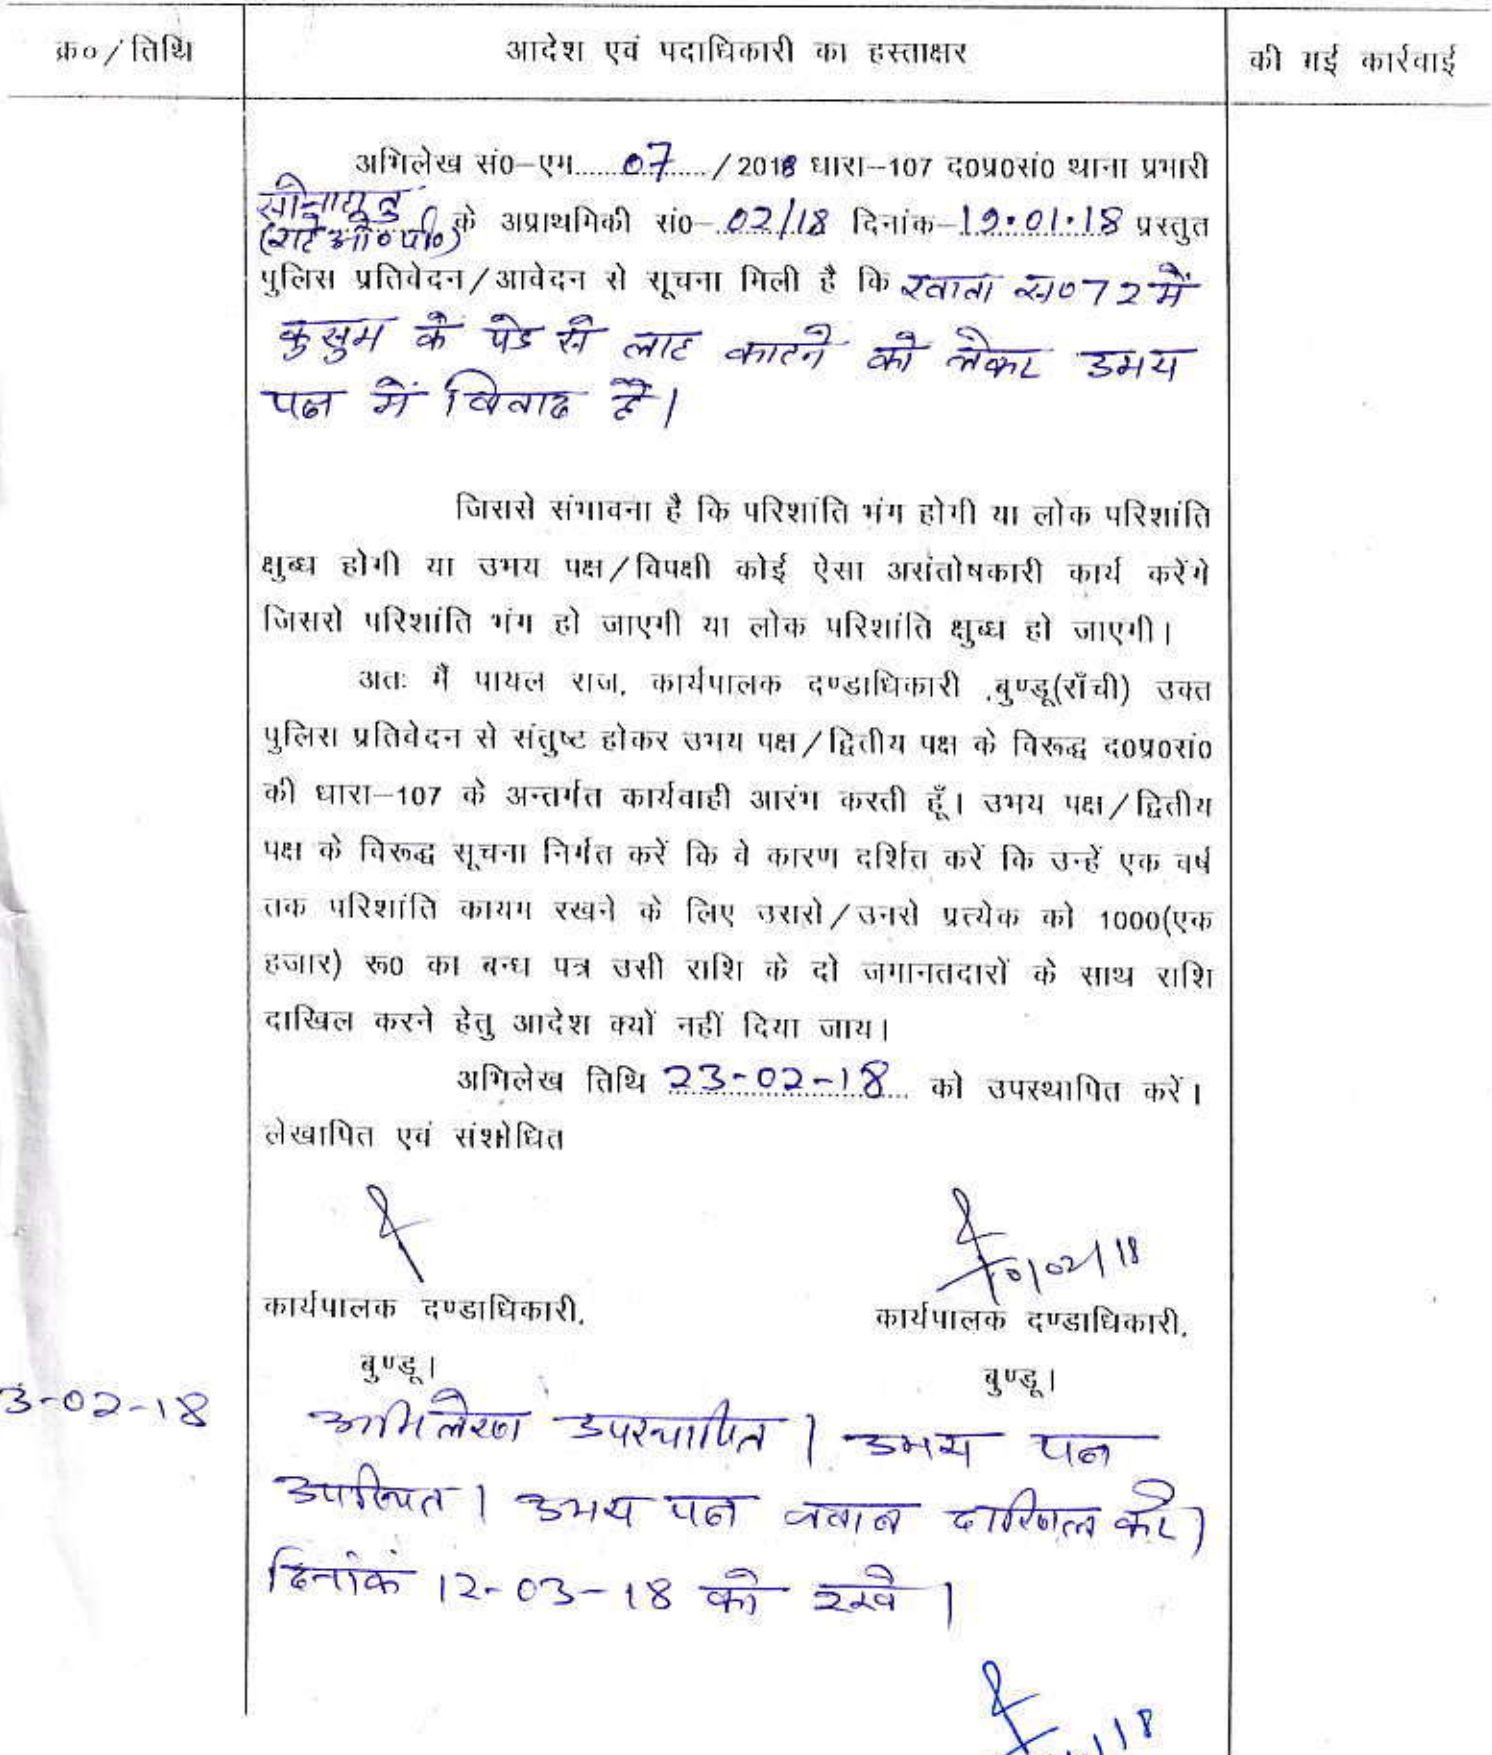 क्र०/तिथि
आदेश एवं पदाधिकारी का हस्ताक्षर
की गई कार्रवाई
अभिलेख सं०-एम......07....../2018 धारा-107 द०प्र०सं० थाना प्रभारी
सोनाहातु
(राहे ओ०पी०) के अप्राथमिकी सं०-02/18 दिनांक-19.01.18 प्रस्तुत
पुलिस प्रतिवेदन/आवेदन से सूचना मिली है कि खाता सं० 72 में
कुसुम के पेड से लाह काटने को लेकर उभय
पक्ष में विवाद है।
जिससे संभावना है कि परिशांति भंग होगी या लोक परिशांति
क्षुब्ध होगी या उभय पक्ष/विपक्षी कोई ऐसा असंतोषकारी कार्य करेंगे
जिससे परिशांति भंग हो जाएगी या लोक परिशांति क्षुब्ध हो जाएगी।
अतः मैं पायल राज, कार्यपालक दण्डाधिकारी ,बुण्डू(राँची) उक्त
पुलिस प्रतिवेदन से संतुष्ट होकर उभय पक्ष/द्वितीय पक्ष के विरूद्ध द०प्र०सं०
की धारा-107 के अन्तर्गत कार्यवाही आरंभ करती हूँ। उभय पक्ष/द्वितीय
पक्ष के विरूद्ध सूचना निर्गत करें कि वे कारण दर्शित करें कि उन्हें एक वर्ष
तक परिशांति कायम रखने के लिए उससे/उनसे प्रत्येक को 1000(एक
हजार) रू० का बन्ध पत्र उसी राशि के दो जमानतदारों के साथ राशि
दाखिल करने हेतु आदेश क्यों नहीं दिया जाय।
अभिलेख तिथि 23-02-18 को उपस्थापित करें।
लेखापित एवं संशोधित
10/02/18
कार्यपालक दण्डाधिकारी,
कार्यपालक दण्डाधिकारी,
बुण्डू।
बुण्डू।
3-02-18
अभिलेख उपस्थापित। उभय पक्ष
उपस्थित। उभय पक्ष जवाब दाखिल करे।
दिनांक 12-03-18 को रखे।